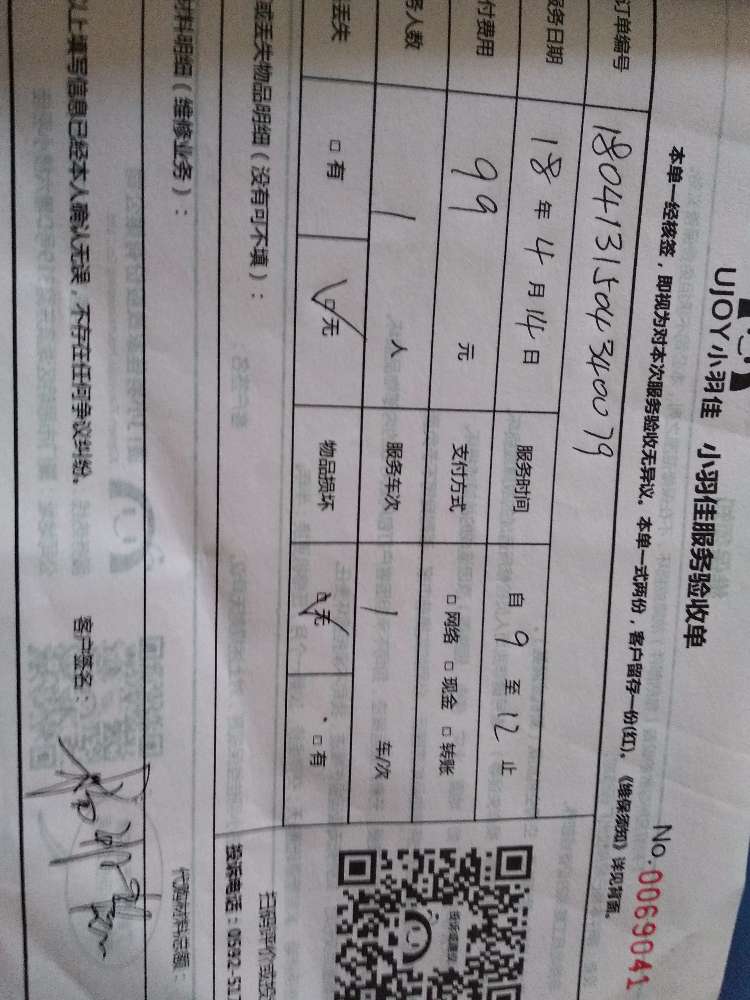 UJOY小羽佳 小羽佳服务验收单
No.0069041
本单一经核签，即视为对本次服务验收无异议。本单一式两份，客户留存一份(红)。《维保须知》详见背面。
订单编号 1804131504340079
服务日期 18年4月14日 服务时间 自9至12止
付费用 99元 支付方式 □网络 □现金 □转账
务人数 1人 服务车次 1车/次
丢失 □有 ☑无 物品损坏 ☑无 □有
或丢失物品明细（没有可不填）：
扫码评价或投
投诉电话：0592-517
材料明细（维修业务）：
代购材料总额：
以上填写信息已经本人确认无误，不存在任何争议纠纷。 客户签名：